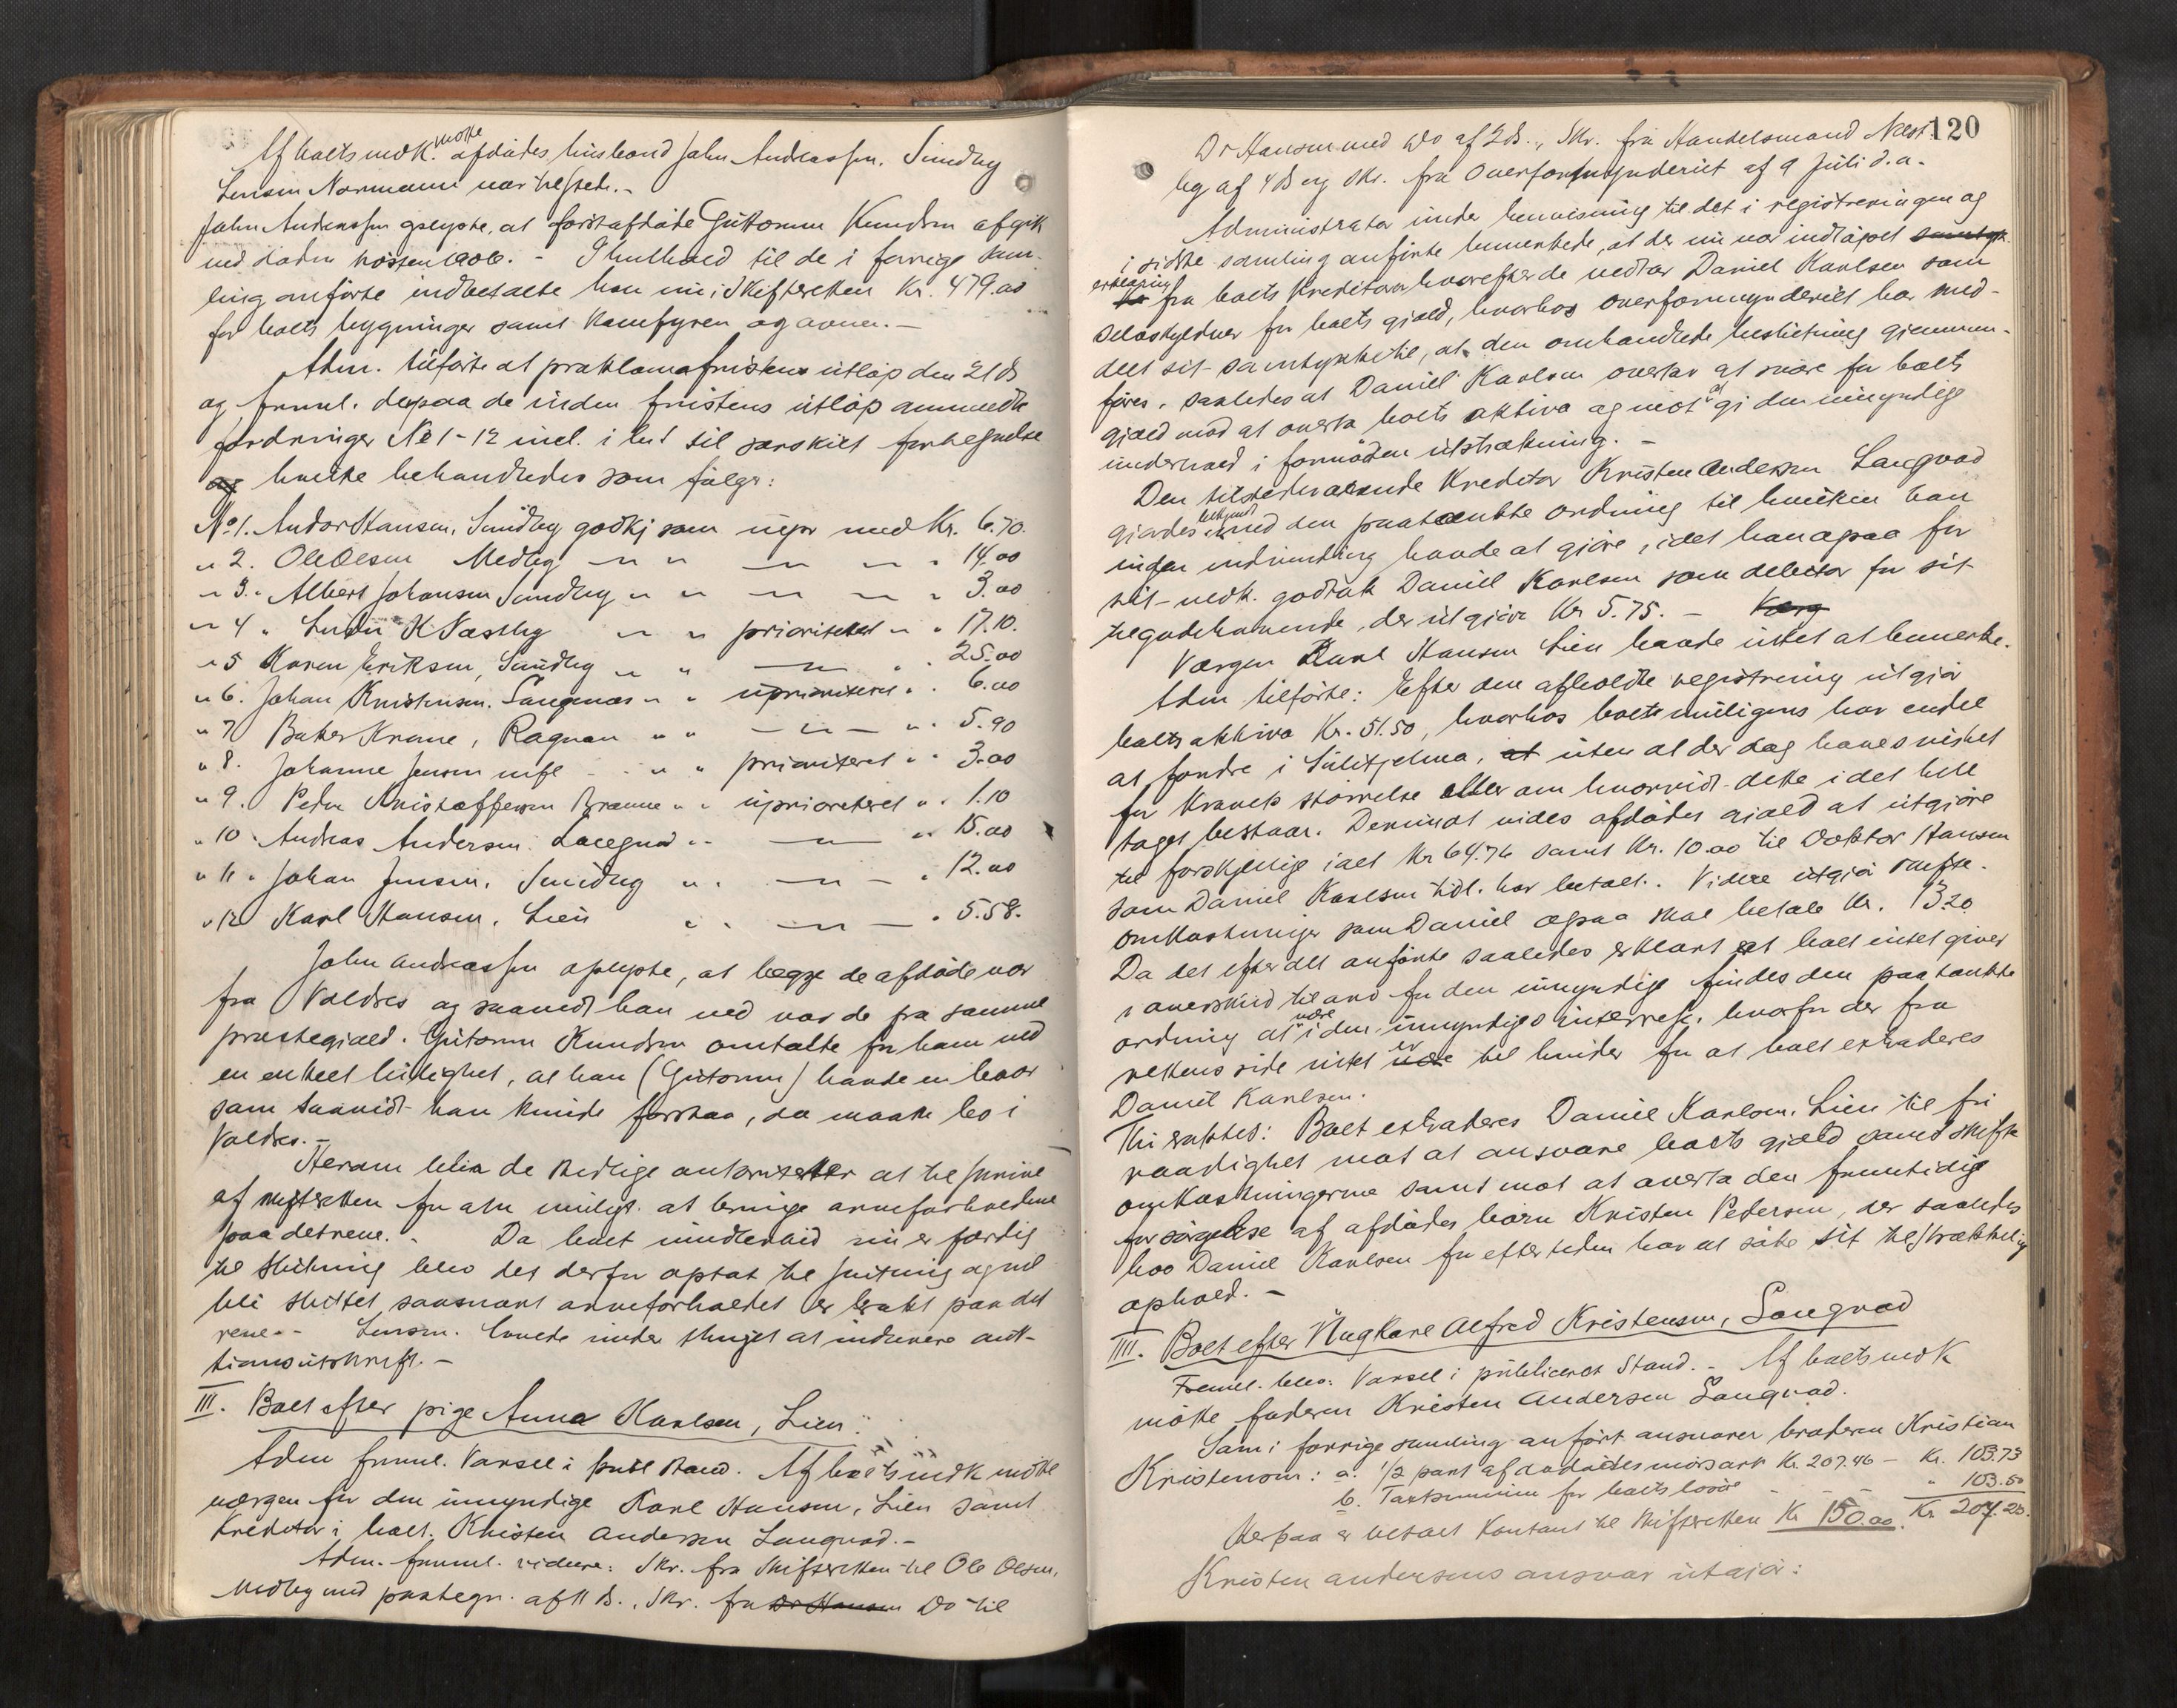 Af boets vedk. møtte afdødes husbond John Andreassen. Sundby
Lensm Normann var tilstede.-
John Andreassen oplyste, at førstafdøde Guttorm Knudsen afgik
ved døden høsten 1906. - I henhold til de i forrige sam-
ling anførte indbetalte han nu i Skifteretten Kr. 479.00
for boets bygninger samt Komfyren og ovnen.-
Adm. tilførte at proklamafristens utløp den 21 ds
og freml. derpaa de inden fristens utløp anmeldte
fordringer No 1-12 incl. i hvilke behandledes som følger:
No 1. Andor Hansen, Sundby godkj som upr med Kr. 6.70.
" 2. Ole Olsen Medby " " " " " 14.00
" 3. Albert Johansen Sundby " " " " " 3.00
" 4. K Næstby " " prioriteret " " 17.10.
" 5 Karen Eriksen, Sundby " " " " " 25.00
" 6. Johan Kristensen. Langnæs " " uprioriteret " " 6.00
" 7 Baker Krane, Rognan " " " " " 5.90
" 8. Johanne Jensen " " prioriteret " " 3.00
" 9. Peder Kristoffersen " " uprioriteret " " 1.10
" 10. Andreas Andersen " " " " 15.00
" 11. Johan Jensen, Sundby " " " " 12.00
" 12 Karl Hansen, Lien " " " " 5.58.
John Andreassen oplyste, at begge de afdøde var
fra Valdres og saavidt han ved var de fra samme
præstegjæld. Guttorm Knudsen omtalte for ham ved
en enkelt leilighet, at han (Guttorm) havde en bror
som saavidt han kunde forstaa, da maatte bo i
Valdres.-
Herom blir de stedlige autoriteter at tilskrive
af skifteretten for om muligt at bringe arveforholdene
paa det rene. - Da boet imidlertid nu er færdig
til slutning blev det derfor optat til slutning og vil
bli sluttet, saasnart arveforholdet er bragt paa det
rene. - Lensm. lovede under skiftet at indlevere auk-
tionsutskrift.-
III. Boet efter pige Anna Karlsen, Lien.
Adm freml. Varsel i publ stand. Af boets vedk møtte
værgen for den umyndige Karl Hansen, Lien samt
Kreditor i boet. Kristen Andersen Langvad.-
Adm. freml. videre: Skr. fra Skifteretten til Ole Olsen,
Medby med paategn. af 11 ds., Skr. fra Dr Hansen Do til
120
Dr Hansen med Do af 2 ds., Skr. fra Handelsmand Næst-
by af 4 ds og skr. fra Overformynderiet af 9 Juli d.a.
Administrator under henvisning til det i registreringen og
i sidste samling anførte bemerkede, at der nu var indløpet
erklæring fra boets Kreditorer hvorefter de vedtar Daniel Karlsen som
selvskyldner for boets gjæld, hvorhos overformynderiet har med-
delt sit samtykke til, at den omhandlede beslutning gjennem-
føres, saaledes at Daniel Karlsen overtar at svare for boets
gjæld mod at overta boets aktiva og mot at gi den umyndige
underhold i fornøden utstrækning. -
Den tilstedeværende Kreditor Kristen Andersen Langvad
gjordes bekjendt med den paatænkte ordning til hvilken han
ingen indvending havde at gjøre, idet han ogsaa for
sit vedk. godtok Daniel Karlsen som debitor for sit
tilgodehavende, der utgjør Kr 5.75. - Værg
Værgen Karl Hansen Lien havde intet at bemerke.
Adm tilførte: Efter den afholdte registrering utgjør
boets aktiva Kr. 51.50, hvorhos boet muligens har endel
at fordre i Sulitjelma, at uten at der dog haves vished
for Kravets størrelse eller om hvorvidt dette i det hele
taget bestaar. Derimot vides afdødes gjæld at utgjøre
til forskjellige ialt Kr 64.76 samt Kr. 10.00 til Doktor Hansen
som Daniel Karlsen tidl. har betalt. Videre utgjør skifte-
omkostninger som Daniel ogsaa skal betale Kr. 13.20
Da det efter det anførte saaledes er klart at boet intet giver
i overskud til arv for den umyndige findes den paatænkte
ordning at være i den umyndiges interesse, hvorfor der fra
rettens side intet er til hinder for at boet extraderes
Daniel Karlsen.
Thi eragtes: Boet extraderes Daniel Karlsen, Lien til fri
raadighet mot at ansvare boets gjæld samt skifte
omkostningerne samt mot at overta den fremtidige
forsørgelse af afdødes barn Kristen Pedersen, der saaledes
hos Daniel Karlsen for eftertiden har at søke sit tilstrækkelig
ophold. -
IIII. Boet efter Ungkare Alfred Kristensen, Langvad
Freml. blev: Varsel i publiceret Stand. - Af boets vedk
møtte faderen Kristen Andersen Langvad.
Som i forrige samling anført ansvarer broderen Kristian
Kristensen: a. 1/2 part af afdødes morsarv Kr. 207.46 - Kr. 103.73
b. Takstsummen for boets løsøre - - - " 103.50
Kr. 207.23.
Herpaa er betalt Kontant til Skifteretten Kr 150.00.
Kristen Andersens ansvar utgjør: